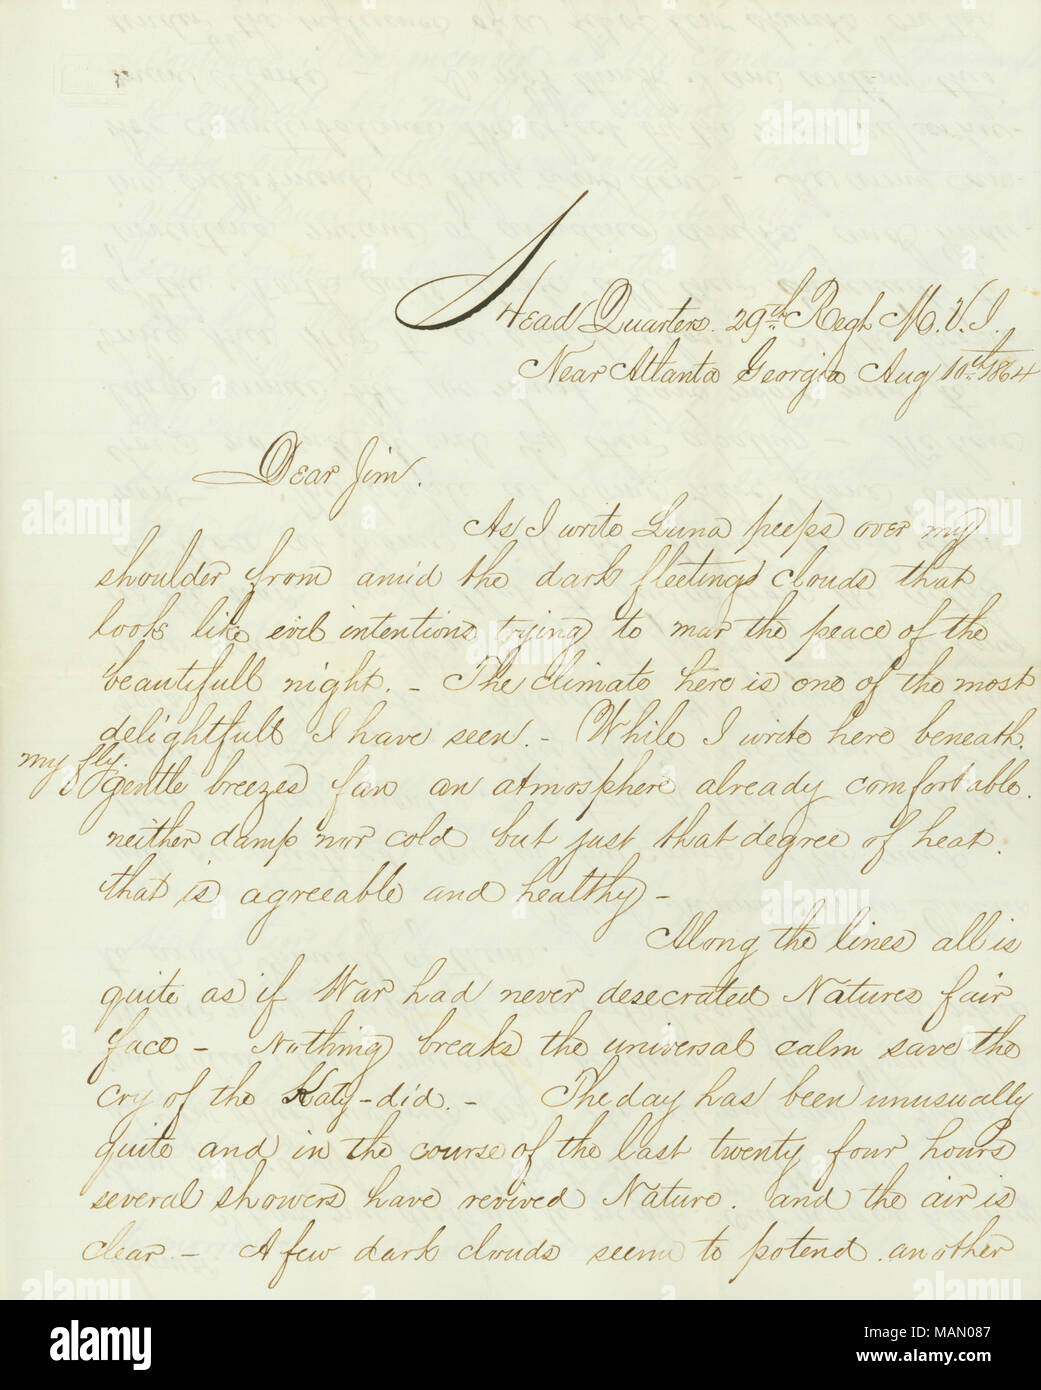 Head Quarters. 29th Regt M. V. I.
Near Atlanta Georgia Aug 10th 1864
Dear Jim.
As I write Luna peeps over my
shoulder from amid the dark fleeting clouds that
looks like evil intentions trying to mar the peace of the
beautifull night. - The Climate here is one of the most
delightfull I have seen. - While I write here beneath
my fly. gentle breezes fan an atmosphere already comfortable.
neither damp nor cold but just that degree of heat.
that is agreeable and healthy -
Along the lines all is
quite as if War had never desecrated Natures fair
face - Nothing breaks the universal calm save the
cry of the Katy-did. - The day has been unusually
quite and in the course of the last twenty four hours
several showers have revived Nature. and the air is
clear - A few dark clouds seem to potend another
alamy
a
alamy
www.alamy.com
Image ID: MAN087